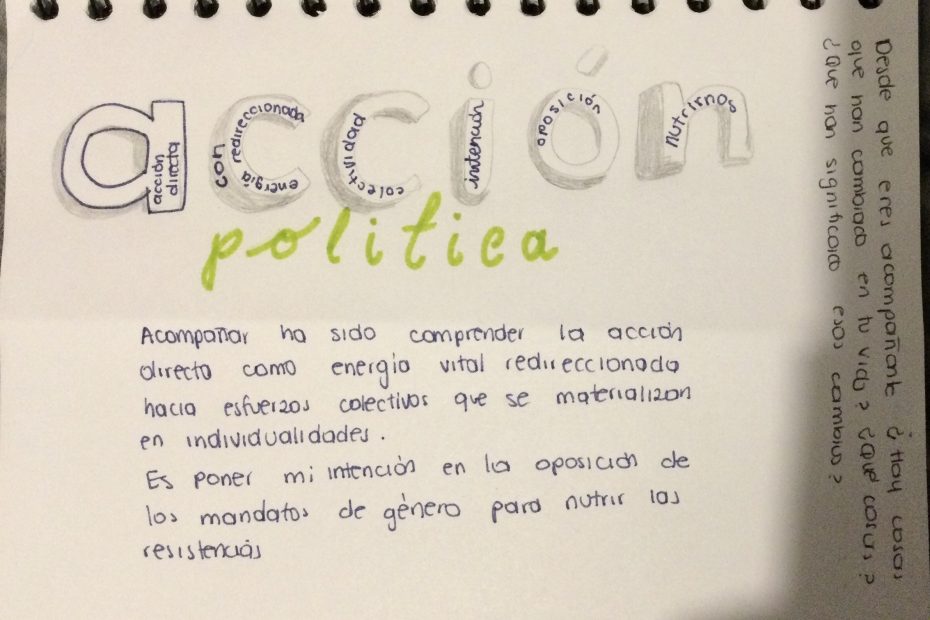 acción
acción
directa
con
energía
redireccionada
colectividad
intención
oposición
nutrirnos
política
Acompañar ha sido comprender la acción
directa como energía vital redireccionada
hacia esfuerzos colectivos que se materializan
en individualidades.
Es poner mi intención en la oposición de
los mandatos de género para nutrir las
resistencias
Desde que eres acompañante ¿Hay cosas
que han cambiado en tu vida? ¿Qué cosas?
¿Que han significado esos cambios?